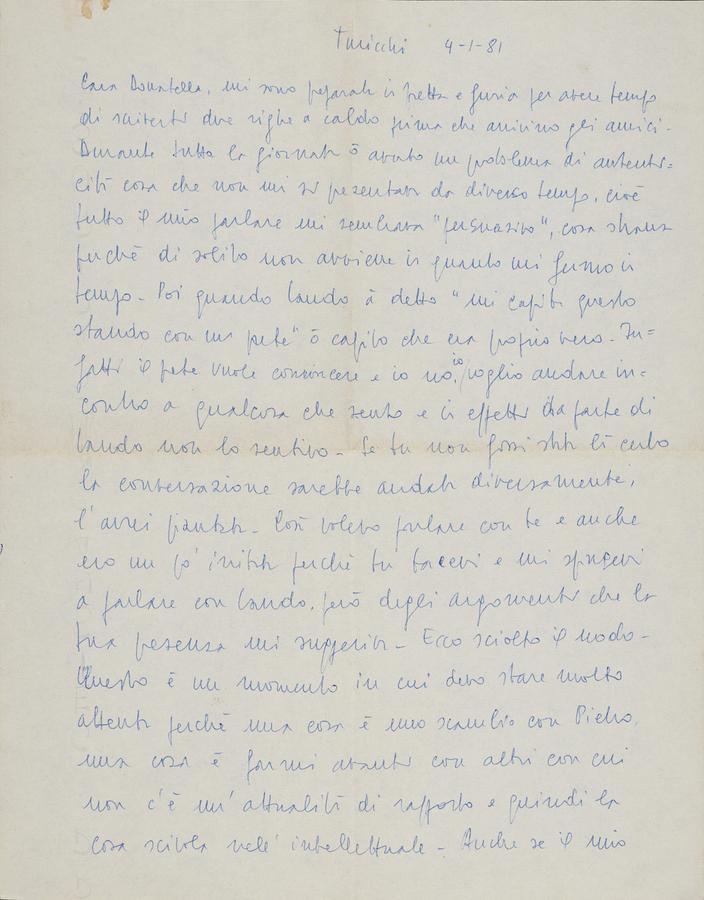 Turicchi 4-1-81
Cara Donatella, mi sono preparata in fretta e furia per avere tempo
di scriverti due righe a caldo prima che arrivino gli amici.
Durante tutta la giornata ò avuto un problema di autenti=
cità cosa che non mi si presentava da diverso tempo, cioè
tutto il mio parlare mi sembrava "persuasivo", cosa strana
perché di solito non avviene in quanto mi fermo in
tempo - Poi quando Lando à detto "mi capita questo
stando con un prete" ò capito che era proprio vero - In=
fatti il prete vuole convincere e io no, io voglio andare in=
contro a qualcosa che sento e in effetti da parte di
Lando non lo sentivo - Se tu non fossi stata lì certo
la conversazione sarebbe andata diversamente,
l'avrei piantata - Così volevo parlare con te e anche
ero un po' irritata perché tu tacevi e mi spingevi
a parlare con Lando, però degli argomenti che la
tua presenza mi suggeriva - Ecco sciolto il nodo -
Questo è un momento in cui devo stare molto
attenta perché una cosa è uno scambio con Pietro,
una cosa è farmi avanti con altri con cui
non c'è un' attualità di rapporto e quindi la
cosa scivola nell' intellettuale - Anche se il mio